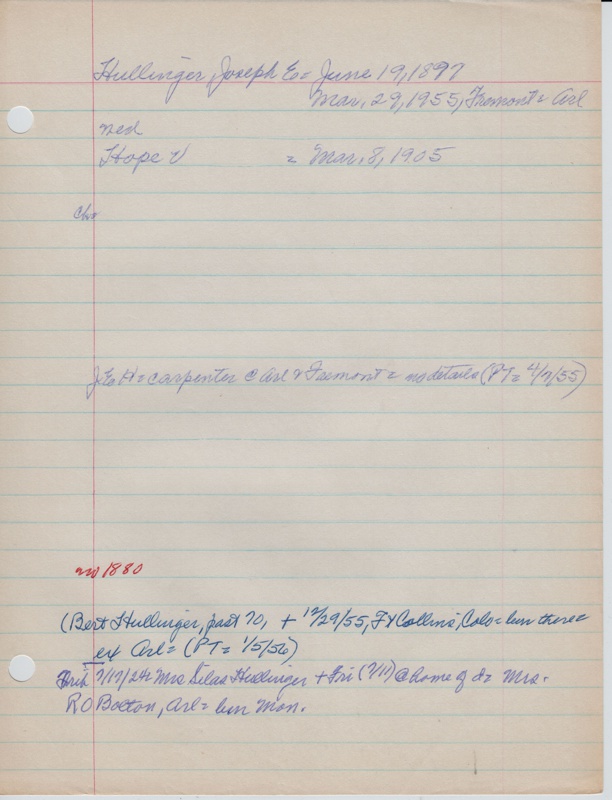 Hullinger, Joseph E = June 19, 1897
Mar, 29, 1955, Fremont = Arl
ned
Hope V = Mar, 8, 1905
ch=
J.E.H = carpenter @ Arl & Fremont = no details (PT = 4/7/55)
no 1880
(Bert Hullinger, past 70, + 12/29/55, Ft Collins, Colo = bur there =
ex Arl = (PT = 1/5/56)
7/17/24 = Mrs. Silas Hullinger + Fri (7/11) @ home of d = Mrs.
R O Botton, Arl = bur Mon.